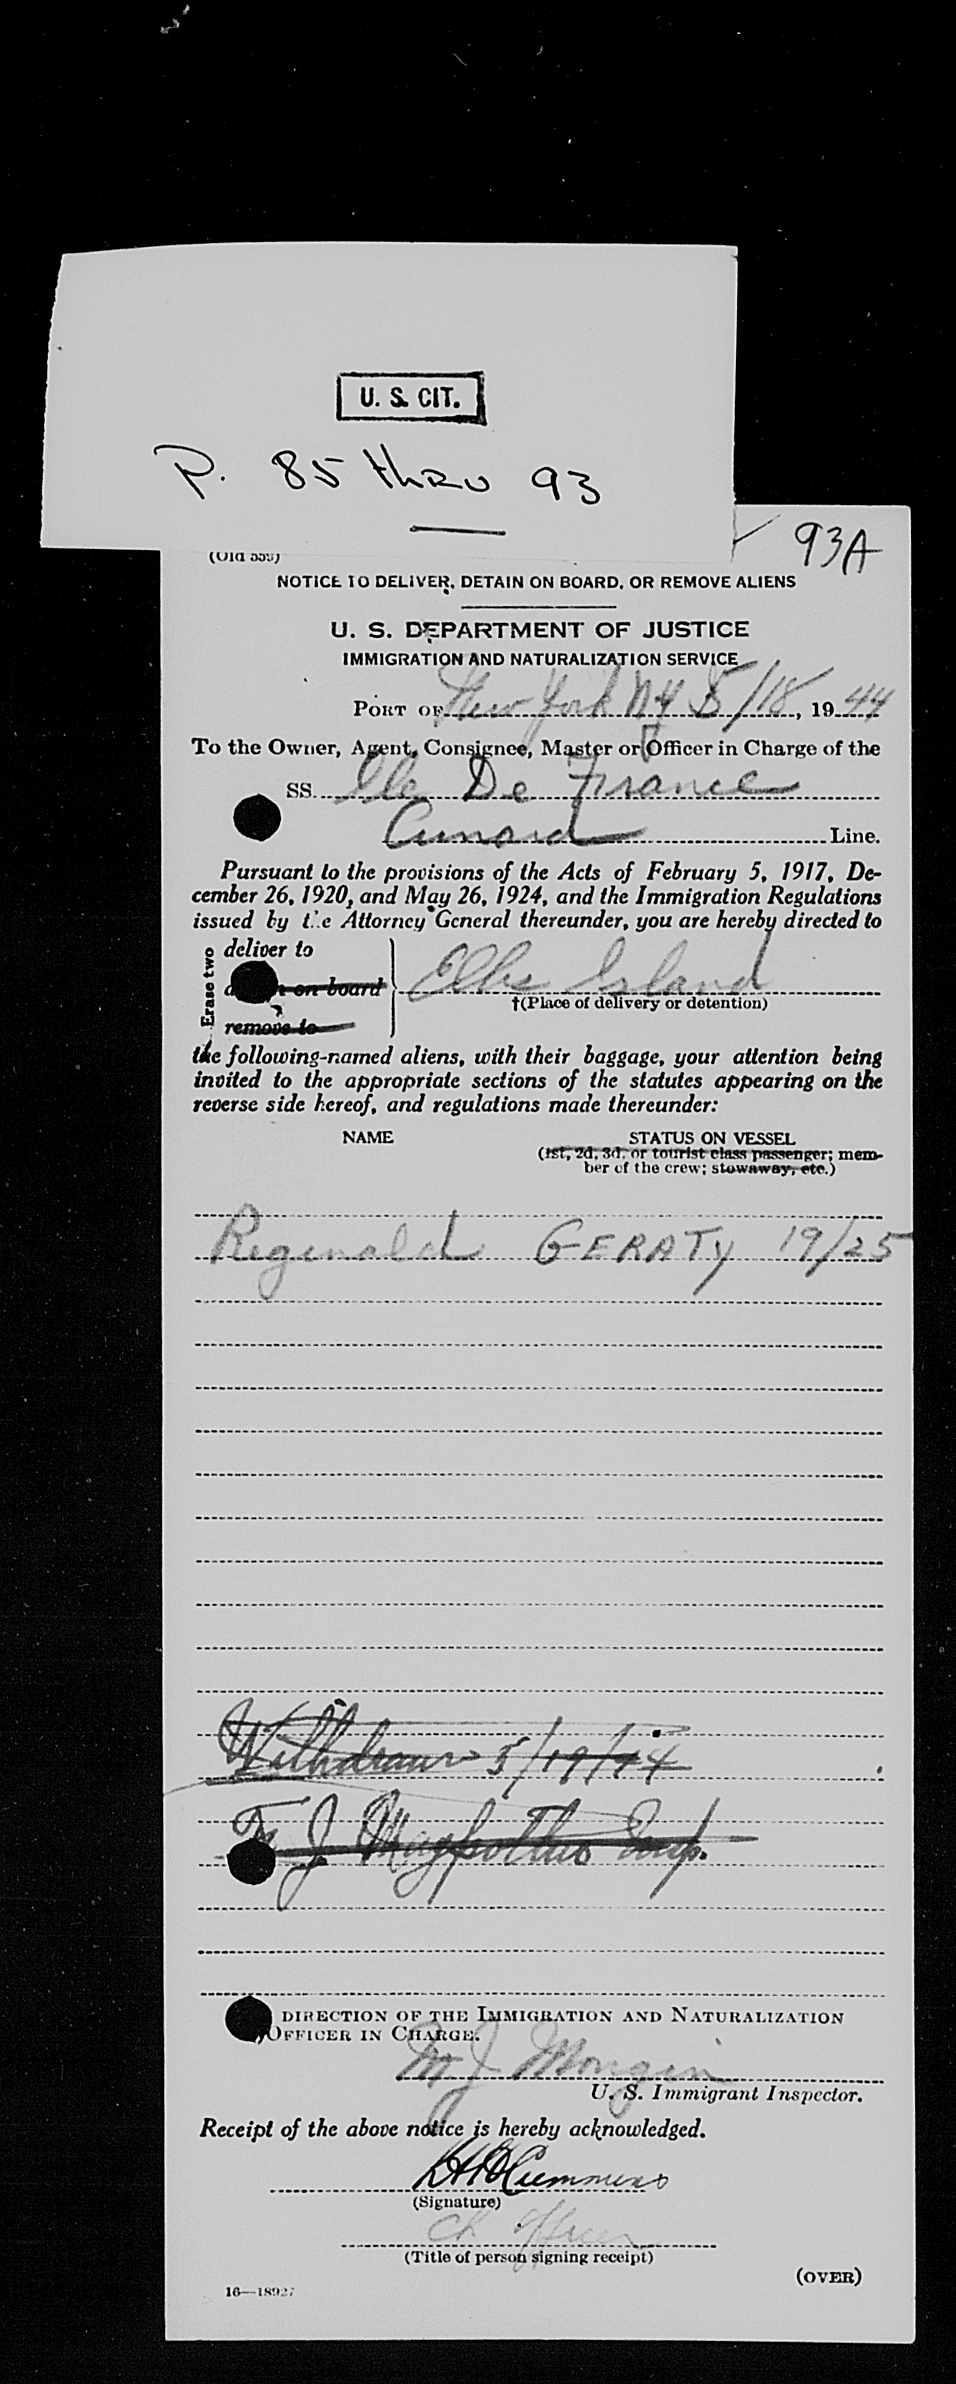 U. S. CIT.
P. 85 thru 93
93A
(Old 559)
NOTICE TO DELIVER, DETAIN ON BOARD, OR REMOVE ALIENS
U. S. DEPARTMENT OF JUSTICE
IMMIGRATION AND NATURALIZATION SERVICE
PORT OF New York NY 5/18, 1944
To the Owner, Agent, Consignee, Master or Officer in Charge of the
SS. Ile De France
Cunard Line.
Pursuant to the provisions of the Acts of February 5, 1917, De-
cember 26, 1920, and May 26, 1924, and the Immigration Regulations
issued by the Attorney General thereunder, you are hereby directed to
Erase two
deliver to
on board Ellis Island
†(Place of delivery or detention)
remove to
the following-named aliens, with their baggage, your attention being
invited to the appropriate sections of the statutes appearing on the
reverse side hereof, and regulations made thereunder:
NAME STATUS ON VESSEL
(1st, 2d, 3d, or tourist class passenger; mem-
ber of the crew; stowaway, etc.)
Reginald GERATY 19/25
Withdrawn 5/19/44
J. Insp.
DIRECTION OF THE IMMIGRATION AND NATURALIZATION
OFFICER IN CHARGE.
M J Mongin
U. S. Immigrant Inspector.
Receipt of the above notice is hereby acknowledged.
Cummins
(Signature)
Ch Officer
(Title of person signing receipt)
(OVER)
16—18927